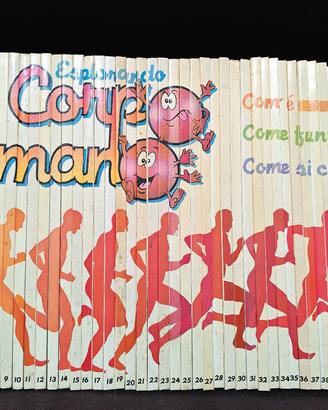 Esplorando
Corpo
mano
Com'è
Come fun
Come si c
9 10 11 12 13 14 15 16 17 18 19 20 21 22 23 24 25 26 27 28 29 30 31 32 33 34 35 36 37 38